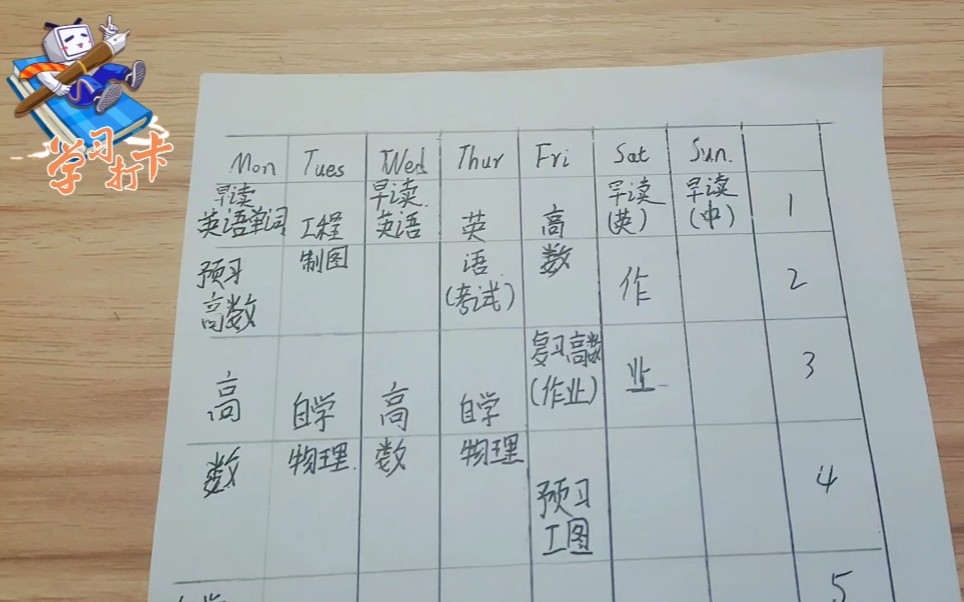 学习打卡
Mon Tues Wed Thur Fri Sat Sun.
早读 早读 早读 早读
英语单词 工程 英语 英 高 (英) (中) 1
预习 制图 语 数
高数 (考试) 作 2
复习高数
高 自学 高 自学 (作业) 业 3
数 物理 数 物理 4
预习
工图
5